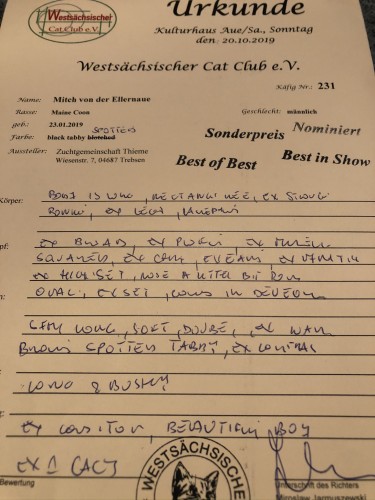 Westsächsischer
Cat Club e.V.
Urkunde
Kulturhaus Aue/Sa., Sonntag
den: 20.10.2019
Westsächsischer Cat Club e.V.
Käfig Nr.: 231
Name: Mitch von der Ellernaue
Rasse: Maine Coon
Geschlecht: männlich
geb.: 23.01.2019
SPOTTED
Farbe: black tabby blotched
Sonderpreis Nominiert
Aussteller: Zuchtgemeinschaft Thieme
Wiesenstr. 7, 04687 Trebsen
Best of Best Best in Show
Körper: BODY IS LONG, RECTANGULAR, EX STRONG
BONING, EX LEGS,
pf: EX BROAD, EX
SQUARED, EX CHIN, EX EARS, EX
EX HIGH SET, NOSE A LITTLE BIT
n: OVAL, EX SET, COLOUR IN DEVELOP
SEMI LONG, SOFT, DOUBLE, EX
BROWN SPOTTED TABBY, EX CONTRAST
LONG & BUSHY
EX CONDITION, BEAUTIFUL BOY
EX 1 CACJ
WESTSÄCHSISCHER
Bewertung
Unterschrift des Richters
Miroslaw Jarmuszewski